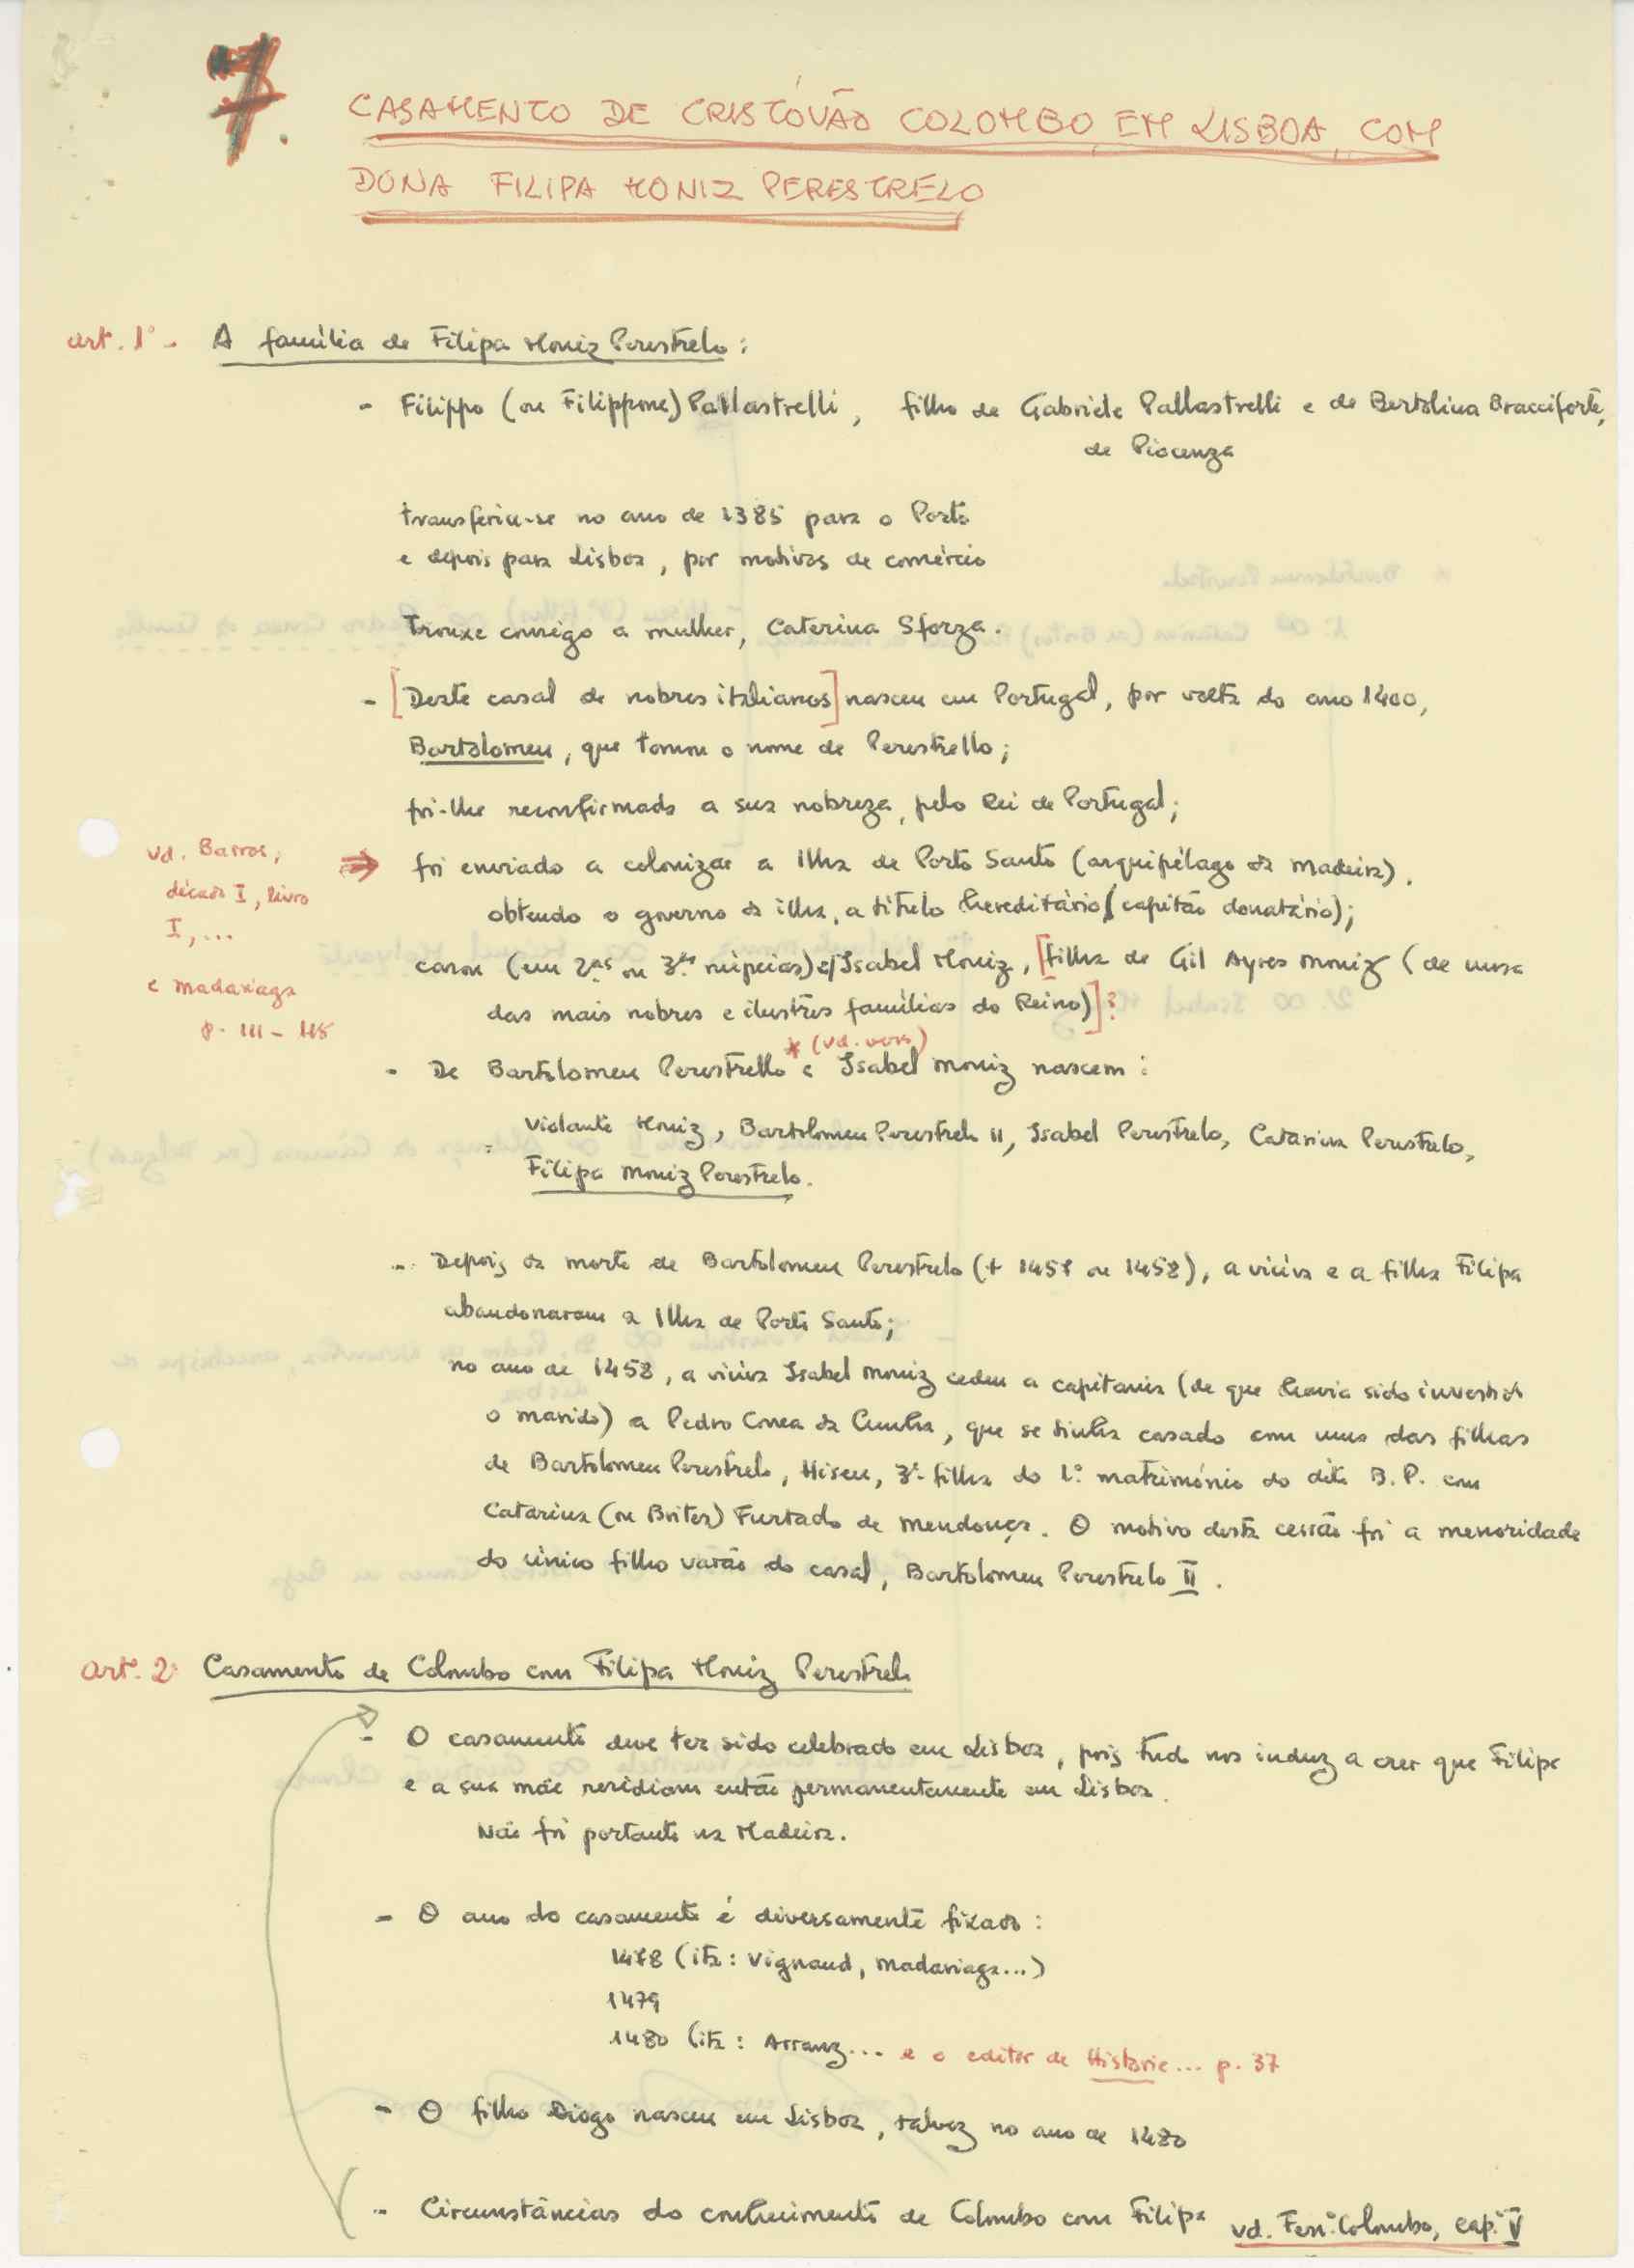 7.
CASAMENTO DE CRISTÓVÃO COLOMBO, EM LISBOA, COM
DONA FILIPA MONIZ PERESTRELO
art. 1º - A família de Filipa Moniz Perestrelo :
- Filippo (ou Filippone) Pallastrelli, filho de Gabriele Pallastrelli e de Bertolina Bracciforte,
de Piacenza
transferiu-se no ano de 1385 para o Porto
e depois para Lisboa, por motivos de comércio
Trouxe consigo a mulher, Caterina Sforza.
- [Deste casal de nobres italianos] nasceu em Portugal, por volta do ano 1400,
Bartolomeu, que tomou o nome de Perestrello;
foi-lhe reconfirmada a sua nobreza, pelo Rei de Portugal;
vd. Barros,
década I, livro
I, ...
e Madariaga
p. 111-115
⇒ foi enviado a colonizar a Ilha de Porto Santo (arquipélago da Madeira).
obtendo o governo da ilha, a título hereditário (capitão donatário);
casou (em 2as ou 3as núpcias) c/ Isabel Moniz, [filha de Gil Ayres Moniz (de uma
das mais nobres e ilustres famílias do Reino)]?
* (vd. verso)
- De Bartolomeu Perestrello e Isabel Moniz nascem :
Violante Moniz, Bartolomeu Perestrelo II, Isabel Perestrelo, Catarina Perestrelo,
Filipa Moniz Perestrelo.
- Depois da morte de Bartolomeu Perestrelo (+ 1457 ou 1458), a viúva e a filha Filipa
abandonaram a Ilha de Porto Santo;
no ano de 1458, a viúva Isabel Moniz cedeu a capitania (de que havia sido investido
o marido) a Pedro Correa da Cunha, que se tinha casado com uma das filhas
de Bartolomeu Perestrelo, Hiseu, 3ª filha do 1º matrimónio do dito B.P. com
Catarina (ou Brites) Furtado de Mendonça. O motivo desta cessão foi a menoridade
do único filho varão do casal, Bartolomeu Perestrelo II.
art. 2º Casamento de Colombo com Filipa Moniz Perestrelo
- O casamento deve ter sido celebrado em Lisboa, pois tudo nos induz a crer que Filipa
e a sua mãe residiam então permanentemente em Lisboa.
Não foi portanto na Madeira.
- O ano do casamento é diversamente fixado :
1478 (ita : Vignaud, Madariaga...)
1479
1480 (ita : Arranz... e o editor de Historie... p. 37
- O filho Diogo nasceu em Lisboa, talvez no ano de 1480
- Circunstâncias do conhecimento de Colombo com Filipa vd. Fernº Colombo, cap.º V